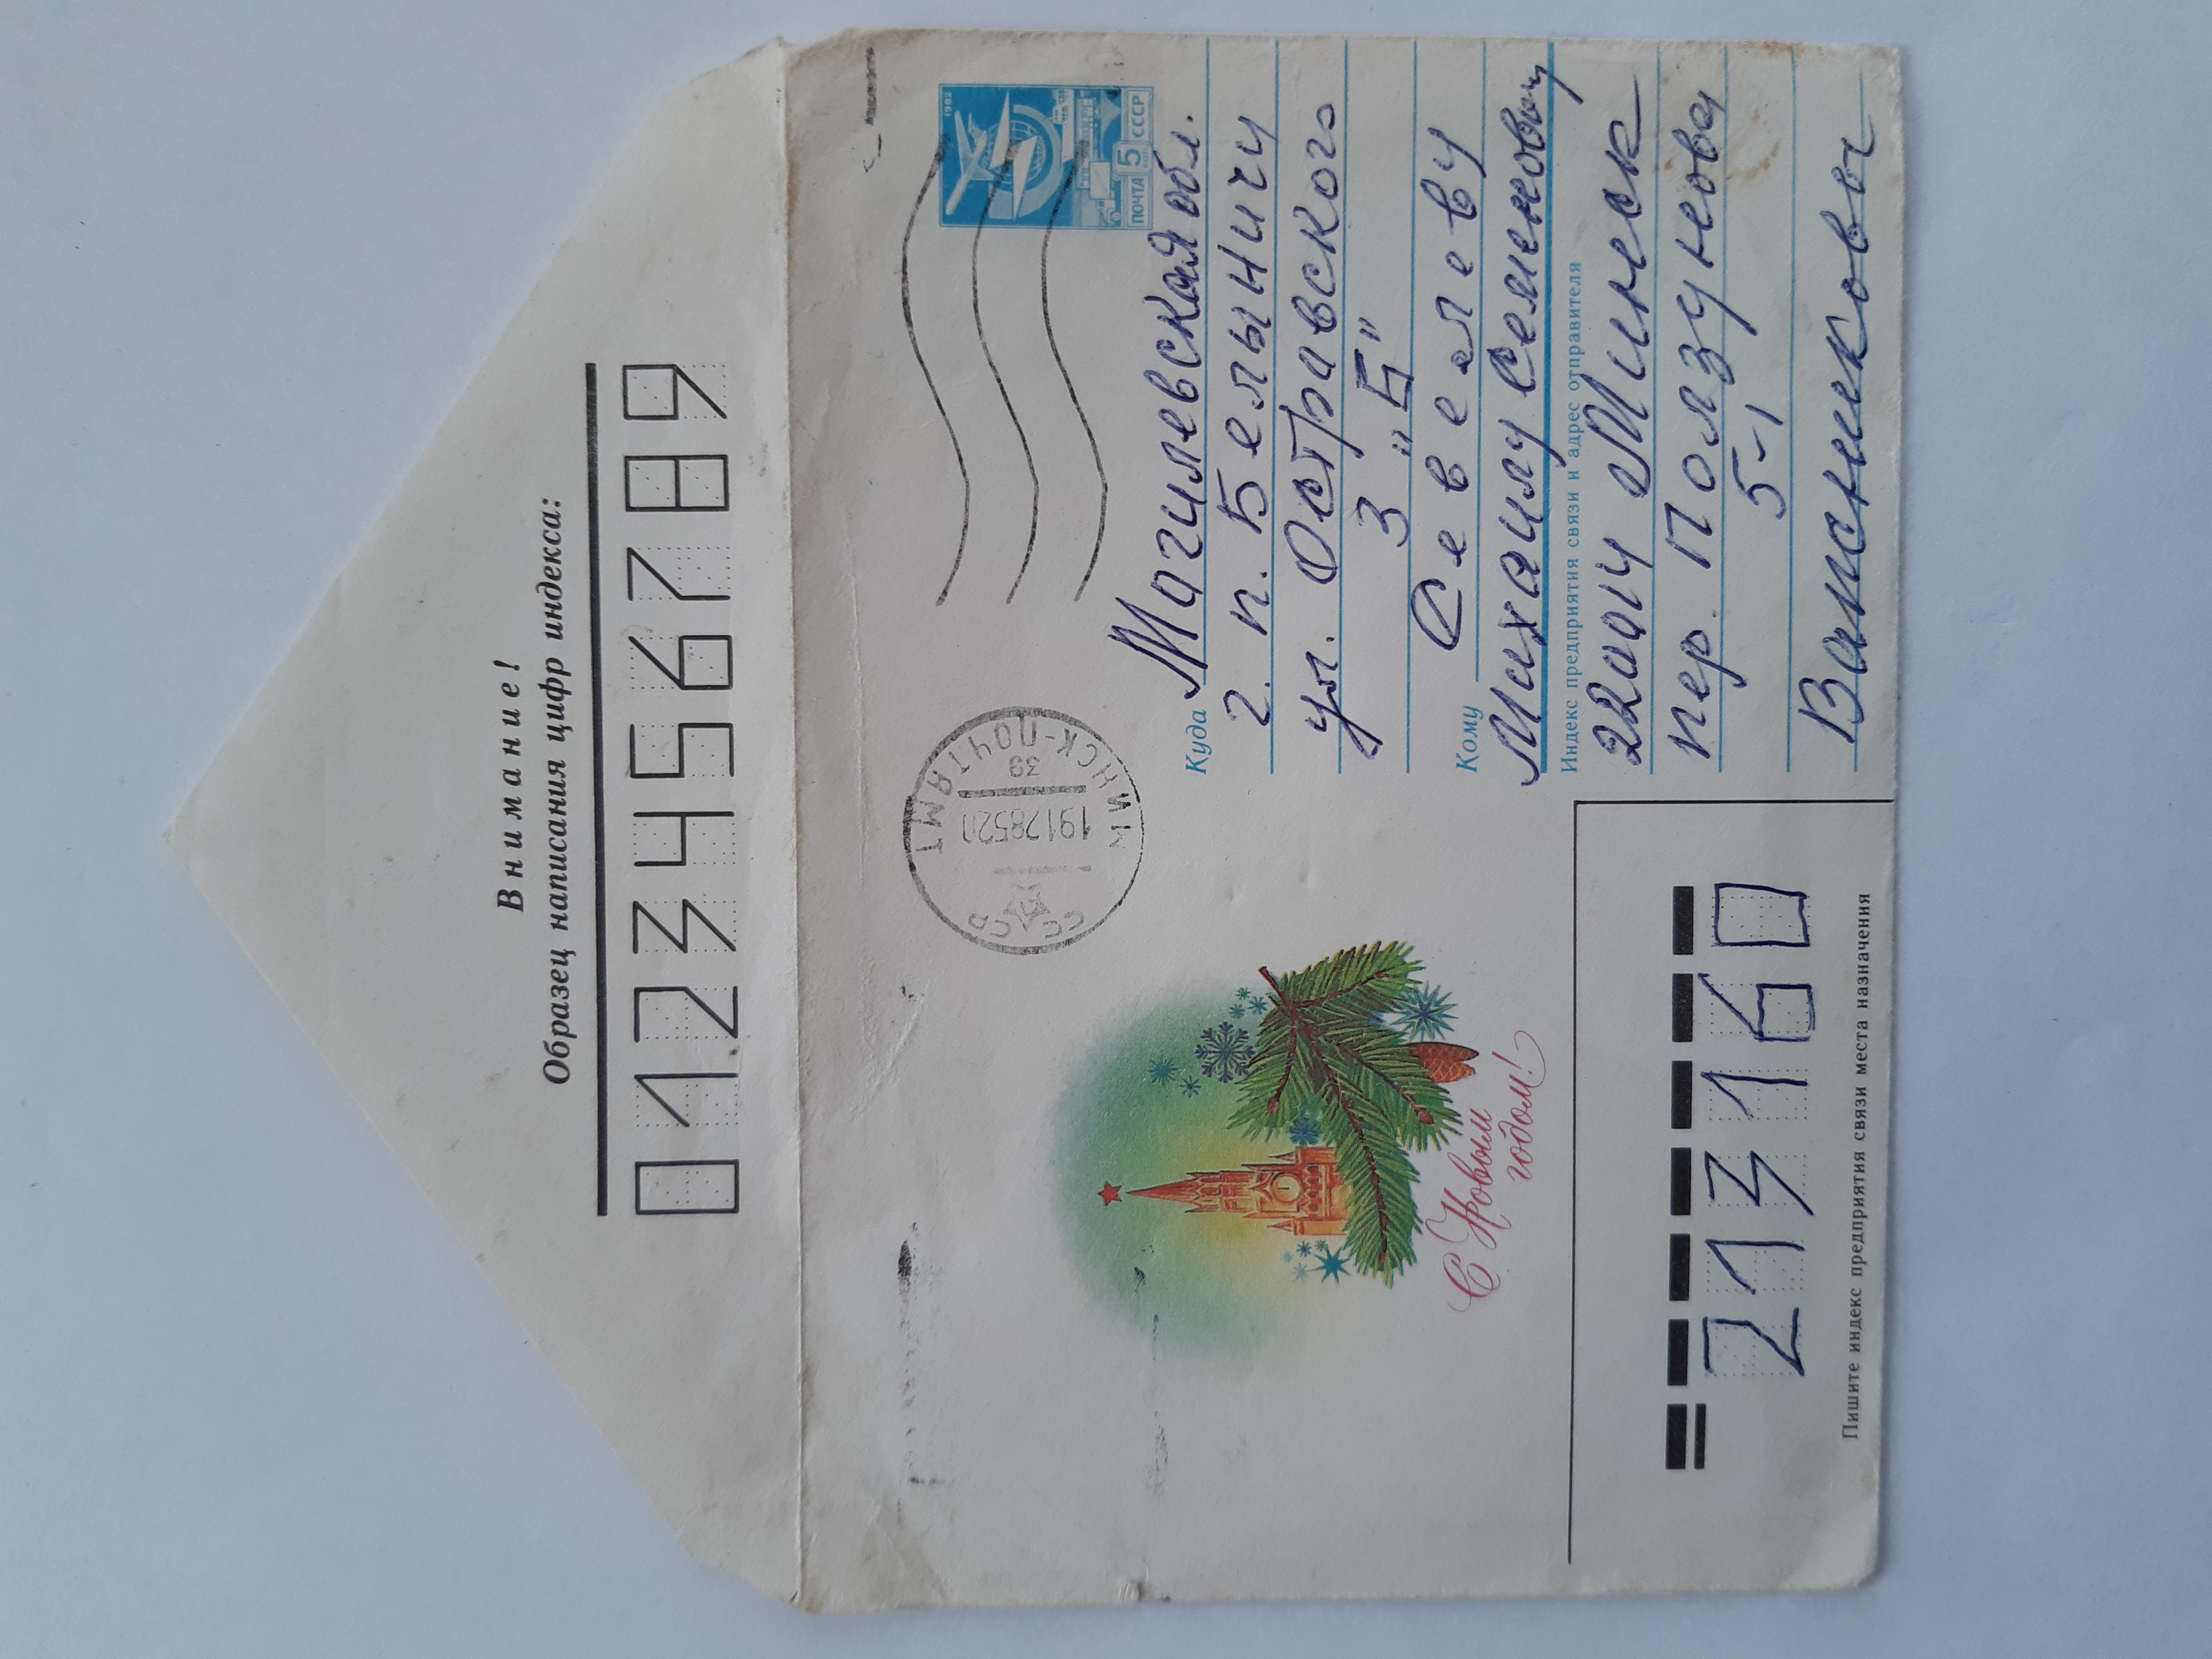 Внимание!
Образец написания цифр индекса:
0123456789
СССР
191285 20
38
МИНСК-ПОЧТАМТ
1982
ПОЧТА 5 СССР
С Новым
годом!
Куда Могилевская обл.
г. п. Белыничи
ул. Островского
3 "Б"
Кому Севелеву
Михаилу Семеновичу
Индекс предприятия связи и адрес отправителя
Минск
пер. Ползунова
5-1
213160
Пишите индекс предприятия связи места назначения